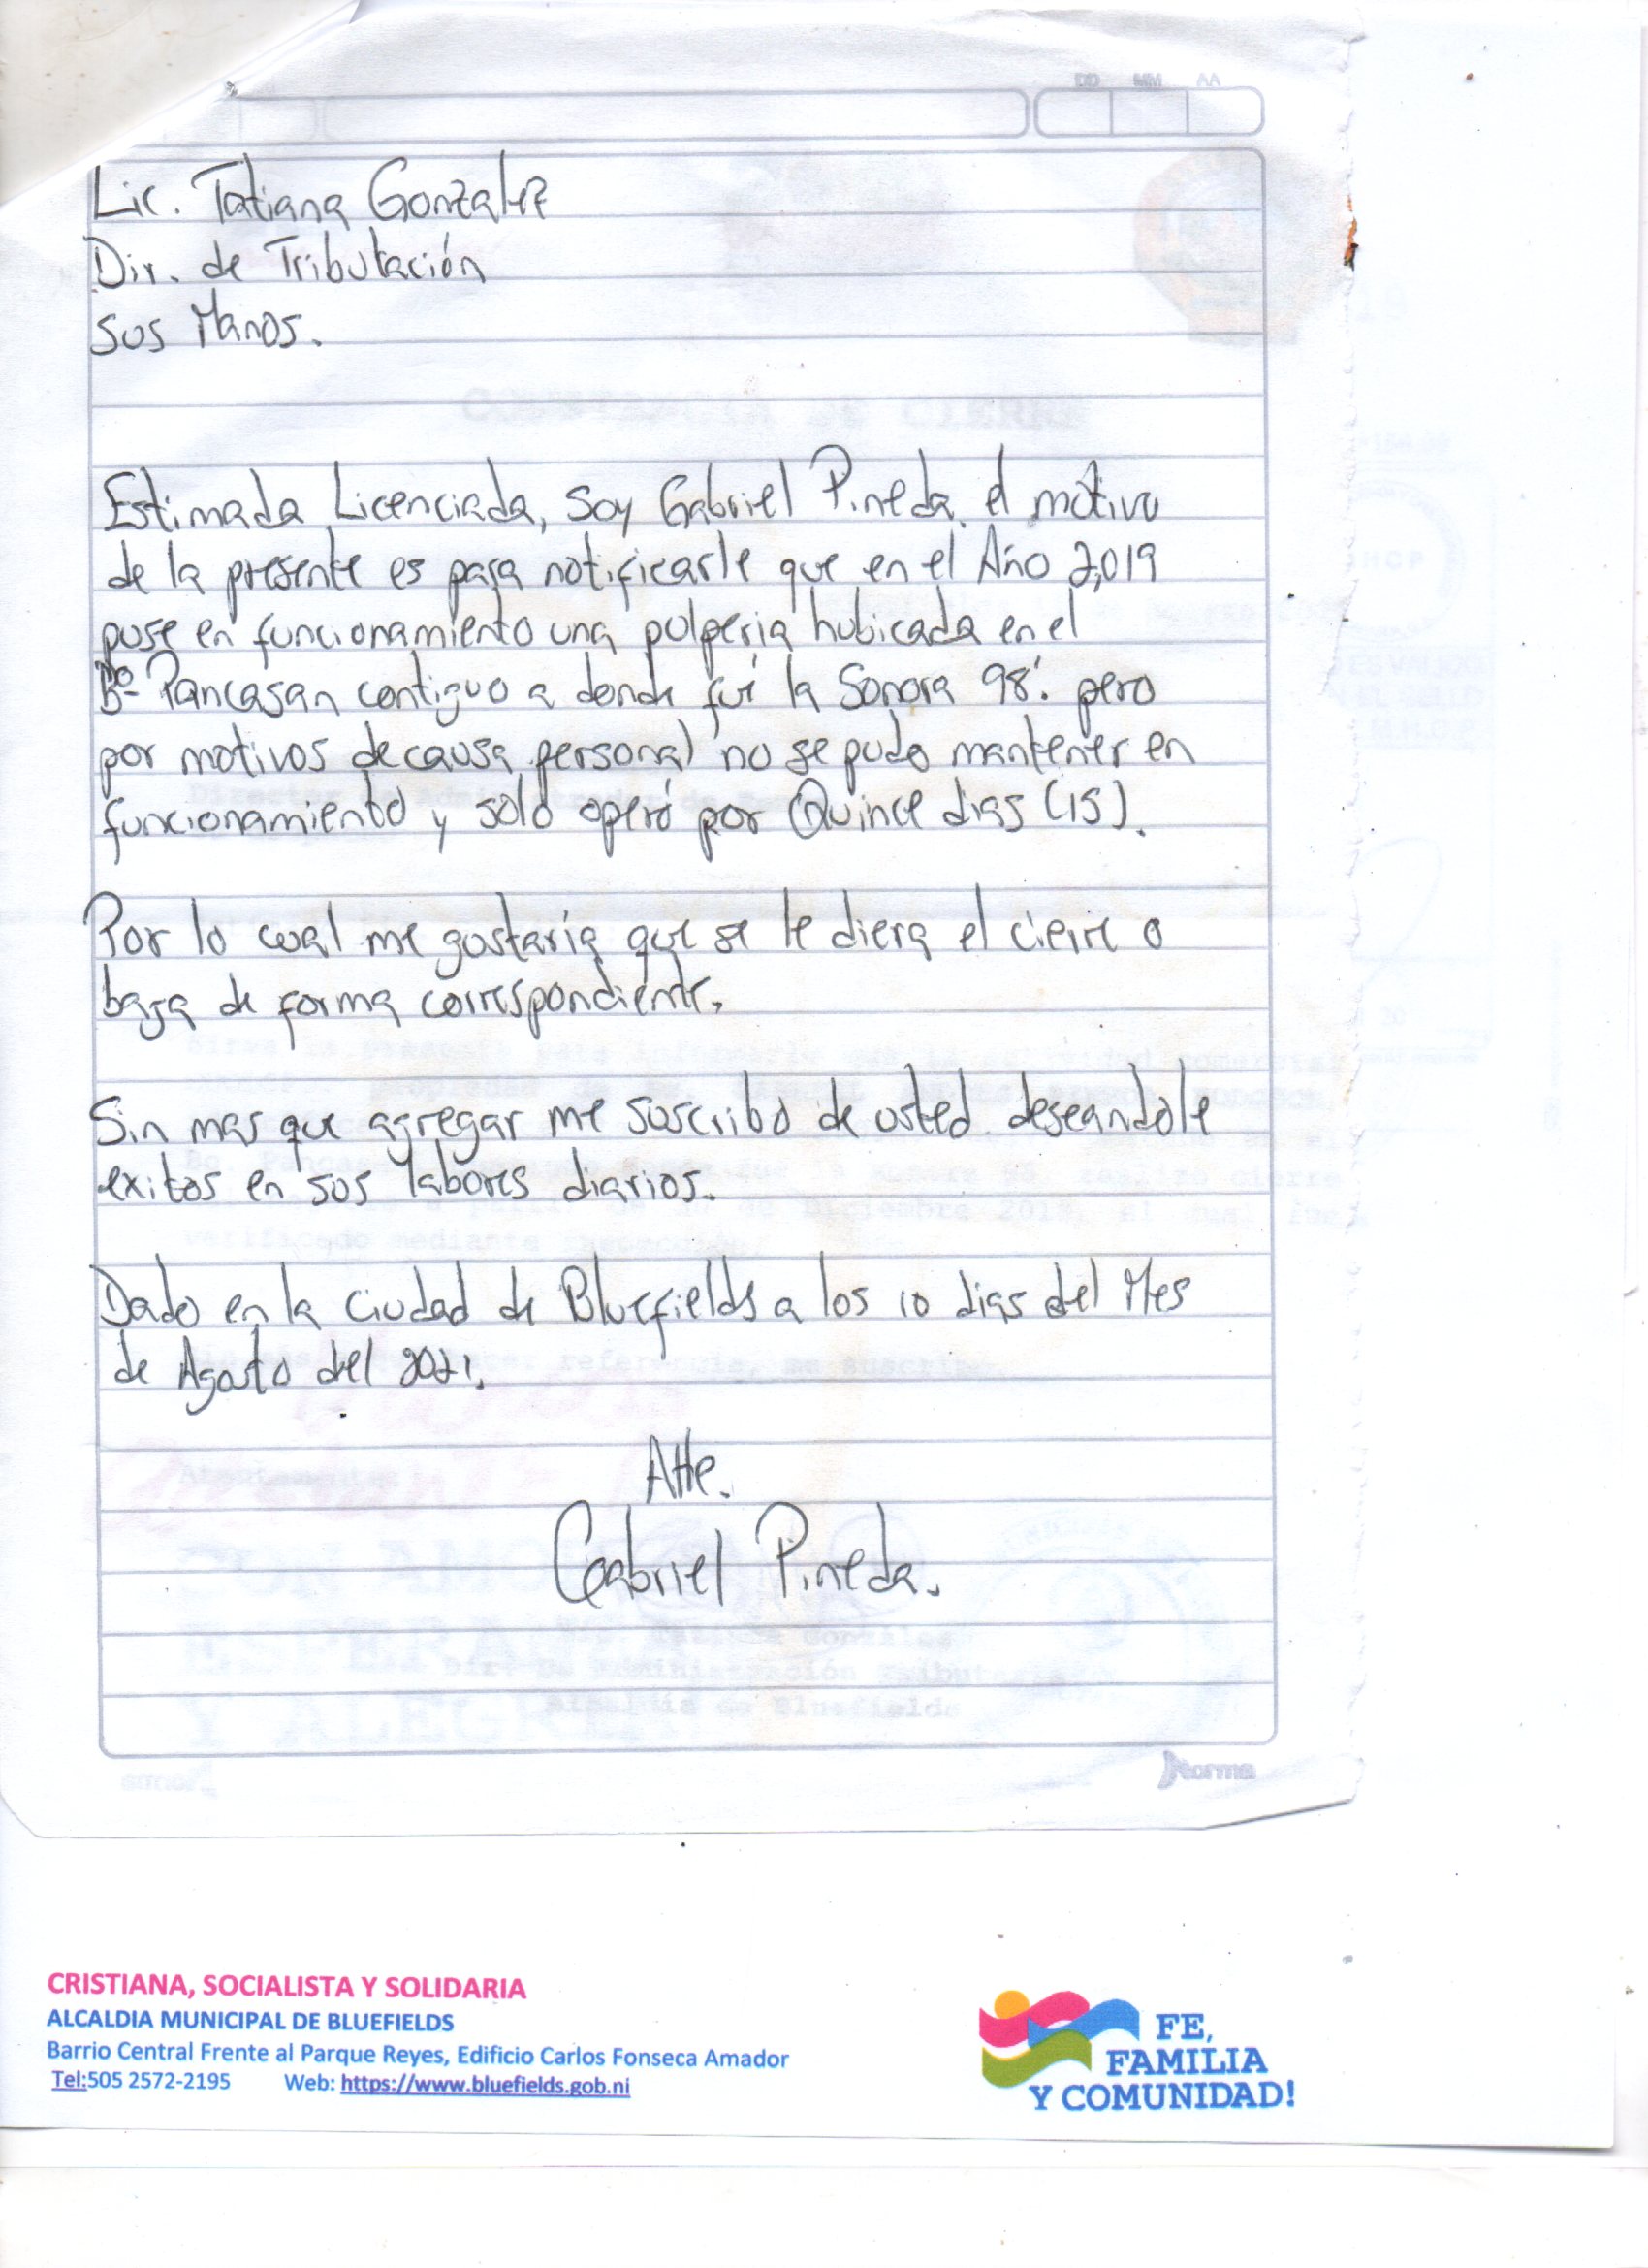 DD MM AA
Lic. Tatiana Gonzalez
Dir. de Tributación
Sus Manos.
CONSTANCIA DE CIERRE
Estimada Licenciada, Soy Gabriel Pineda, el motivo
de la presente es para notificarle que en el Año 2,019
puse en funcionamiento una pulperia hubicada en el
Bº Pancasan contiguo a donde fué la Sonora 98'. pero
por motivos de causa personal no se pudo mantener en
funcionamiento y solo operó por Quince dias (15).
Por lo cual me gustaria que se le diera el cierre o
baja de forma correspondiente.
Sin mas que agregar me suscribo de usted deseandole
exitos en sus labores diarios.
Dado en la Ciudad de Bluefields a los 10 dias del Mes
de Agosto del 2021.
Atte.
Gabriel Pineda.
Norma
CRISTIANA, SOCIALISTA Y SOLIDARIA
ALCALDIA MUNICIPAL DE BLUEFIELDS
Barrio Central Frente al Parque Reyes, Edificio Carlos Fonseca Amador
Tel:505 2572-2195 Web: https://www.bluefields.gob.ni
FE,
FAMILIA
Y COMUNIDAD!